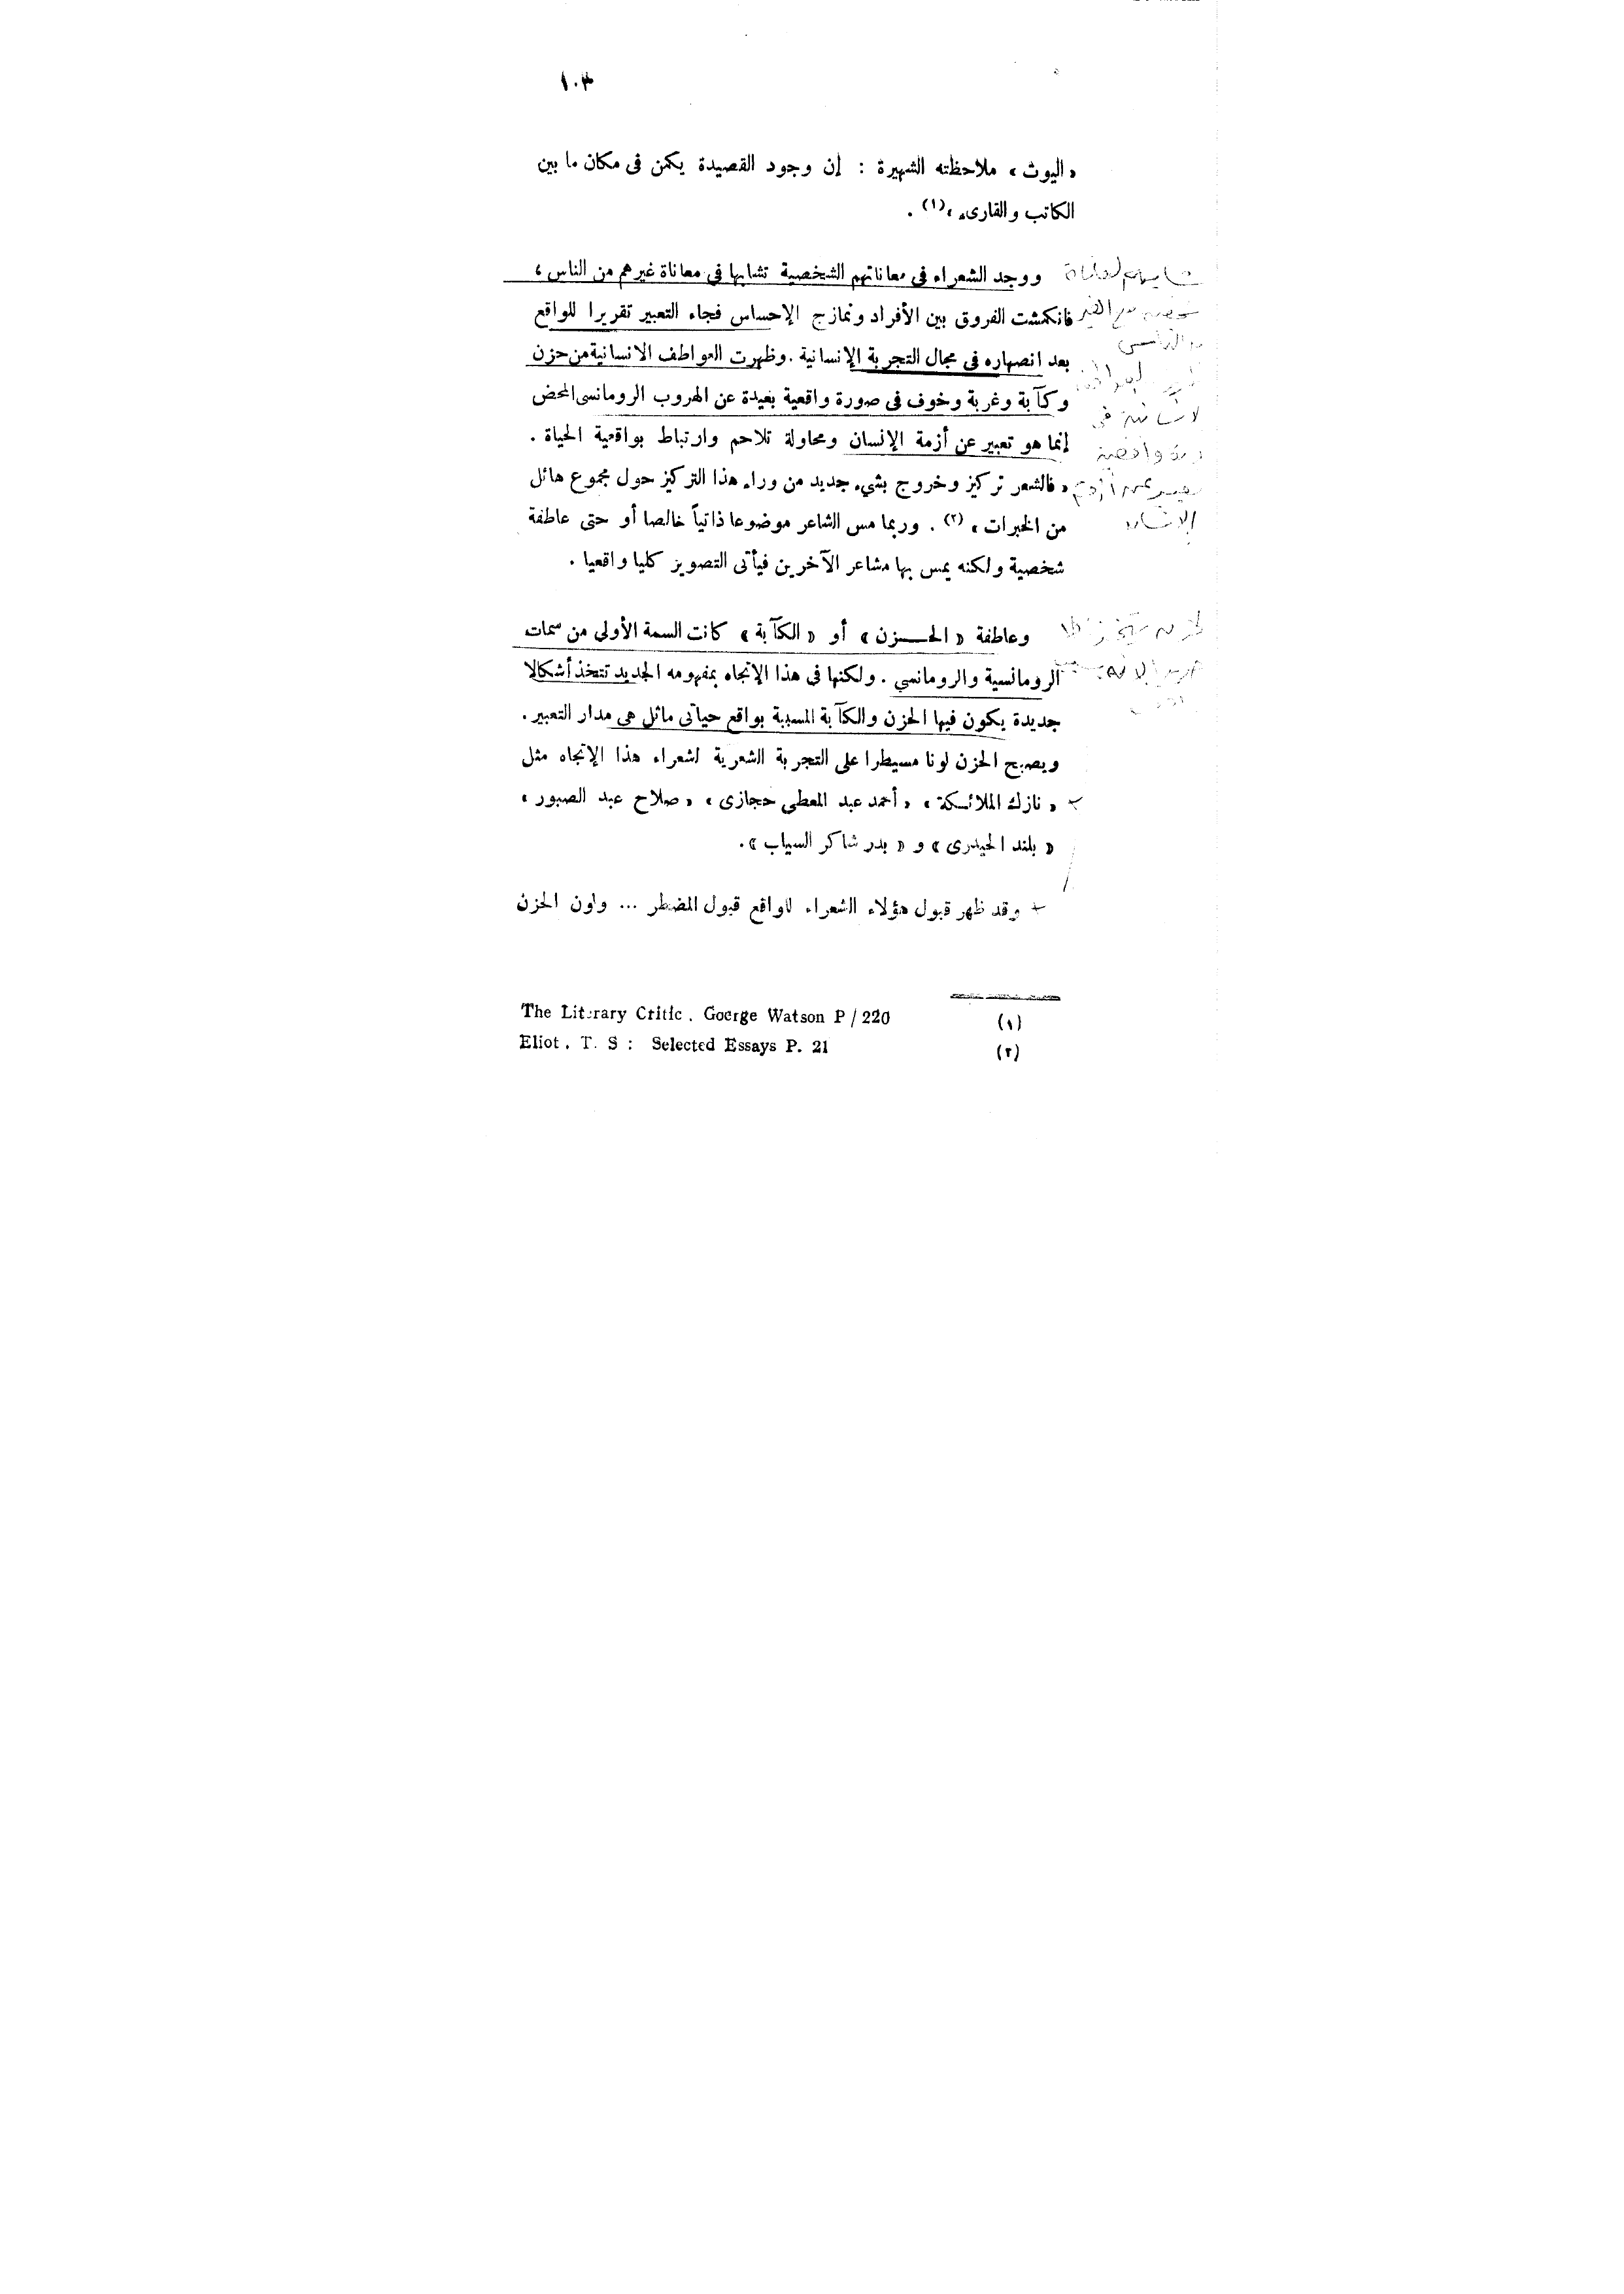 ١٠٣
«اليوث» ملاحظته الشهيرة : إن وجود القصيدة يكمن فى مكان ما بين
الكاتب والقارىء»(١) .
ووجد الشعراء فى معاناتهم الشخصية تشابها فى معاناة غيرهم من الناس ،
فانكمشت الفروق بين الأفراد ونمازج الإحساس فجاء التعبير تقريرا للواقع
بعد انصهاره فى مجال التجربة الإنسانية . وظهرت العواطف الانسانية من حزن
وكآبة وغربة وخوف فى صورة واقعية بعيدة عن الهروب الرومانسى المحض
إنما هو تعبير عن أزمة الإنسان ومحاولة تلاحم وارتباط بواقعية الحياة .
«فالشعر تركيز وخروج بشىء جديد من وراء هذا التركيز حول مجموع هائل
من الخبرات» (٢) . وربما مس الشاعر موضوعا ذاتياً خالصا أو حتى عاطفة
شخصية ولكنه يمس بها مشاعر الآخرين فيأتى التصوير كليا واقعيا .
وعاطفة «الحـــزن» أو «الكآبة» كانت السمة الأولى من سمات
الرومانسية والرومانسي . ولكنها فى هذا الإتجاه بمفهومه الجديد تتخذ أشكالا
جديدة يكون فيها الحزن والكآبة المسببة بواقع حياتى ماثل هى مدار التعبير .
ويصبح الحزن لونا مسيطرا على التجربة الشعرية لشعراء هذا الإتجاه مثل
«نازك الملائكة» «أحمد عبد المعطى حجازى» «صلاح عبد الصبور»
«بلند الحيدرى» و «بدر شاكر السياب» .
وقد ظهر قبول هؤلاء الشعراء لاواقع قبول المضطر ... ولون الحزن
(١) The Literary Critic . Goerge Watson P / 220
(٢) Eliot . T. S : Selected Essays P. 21